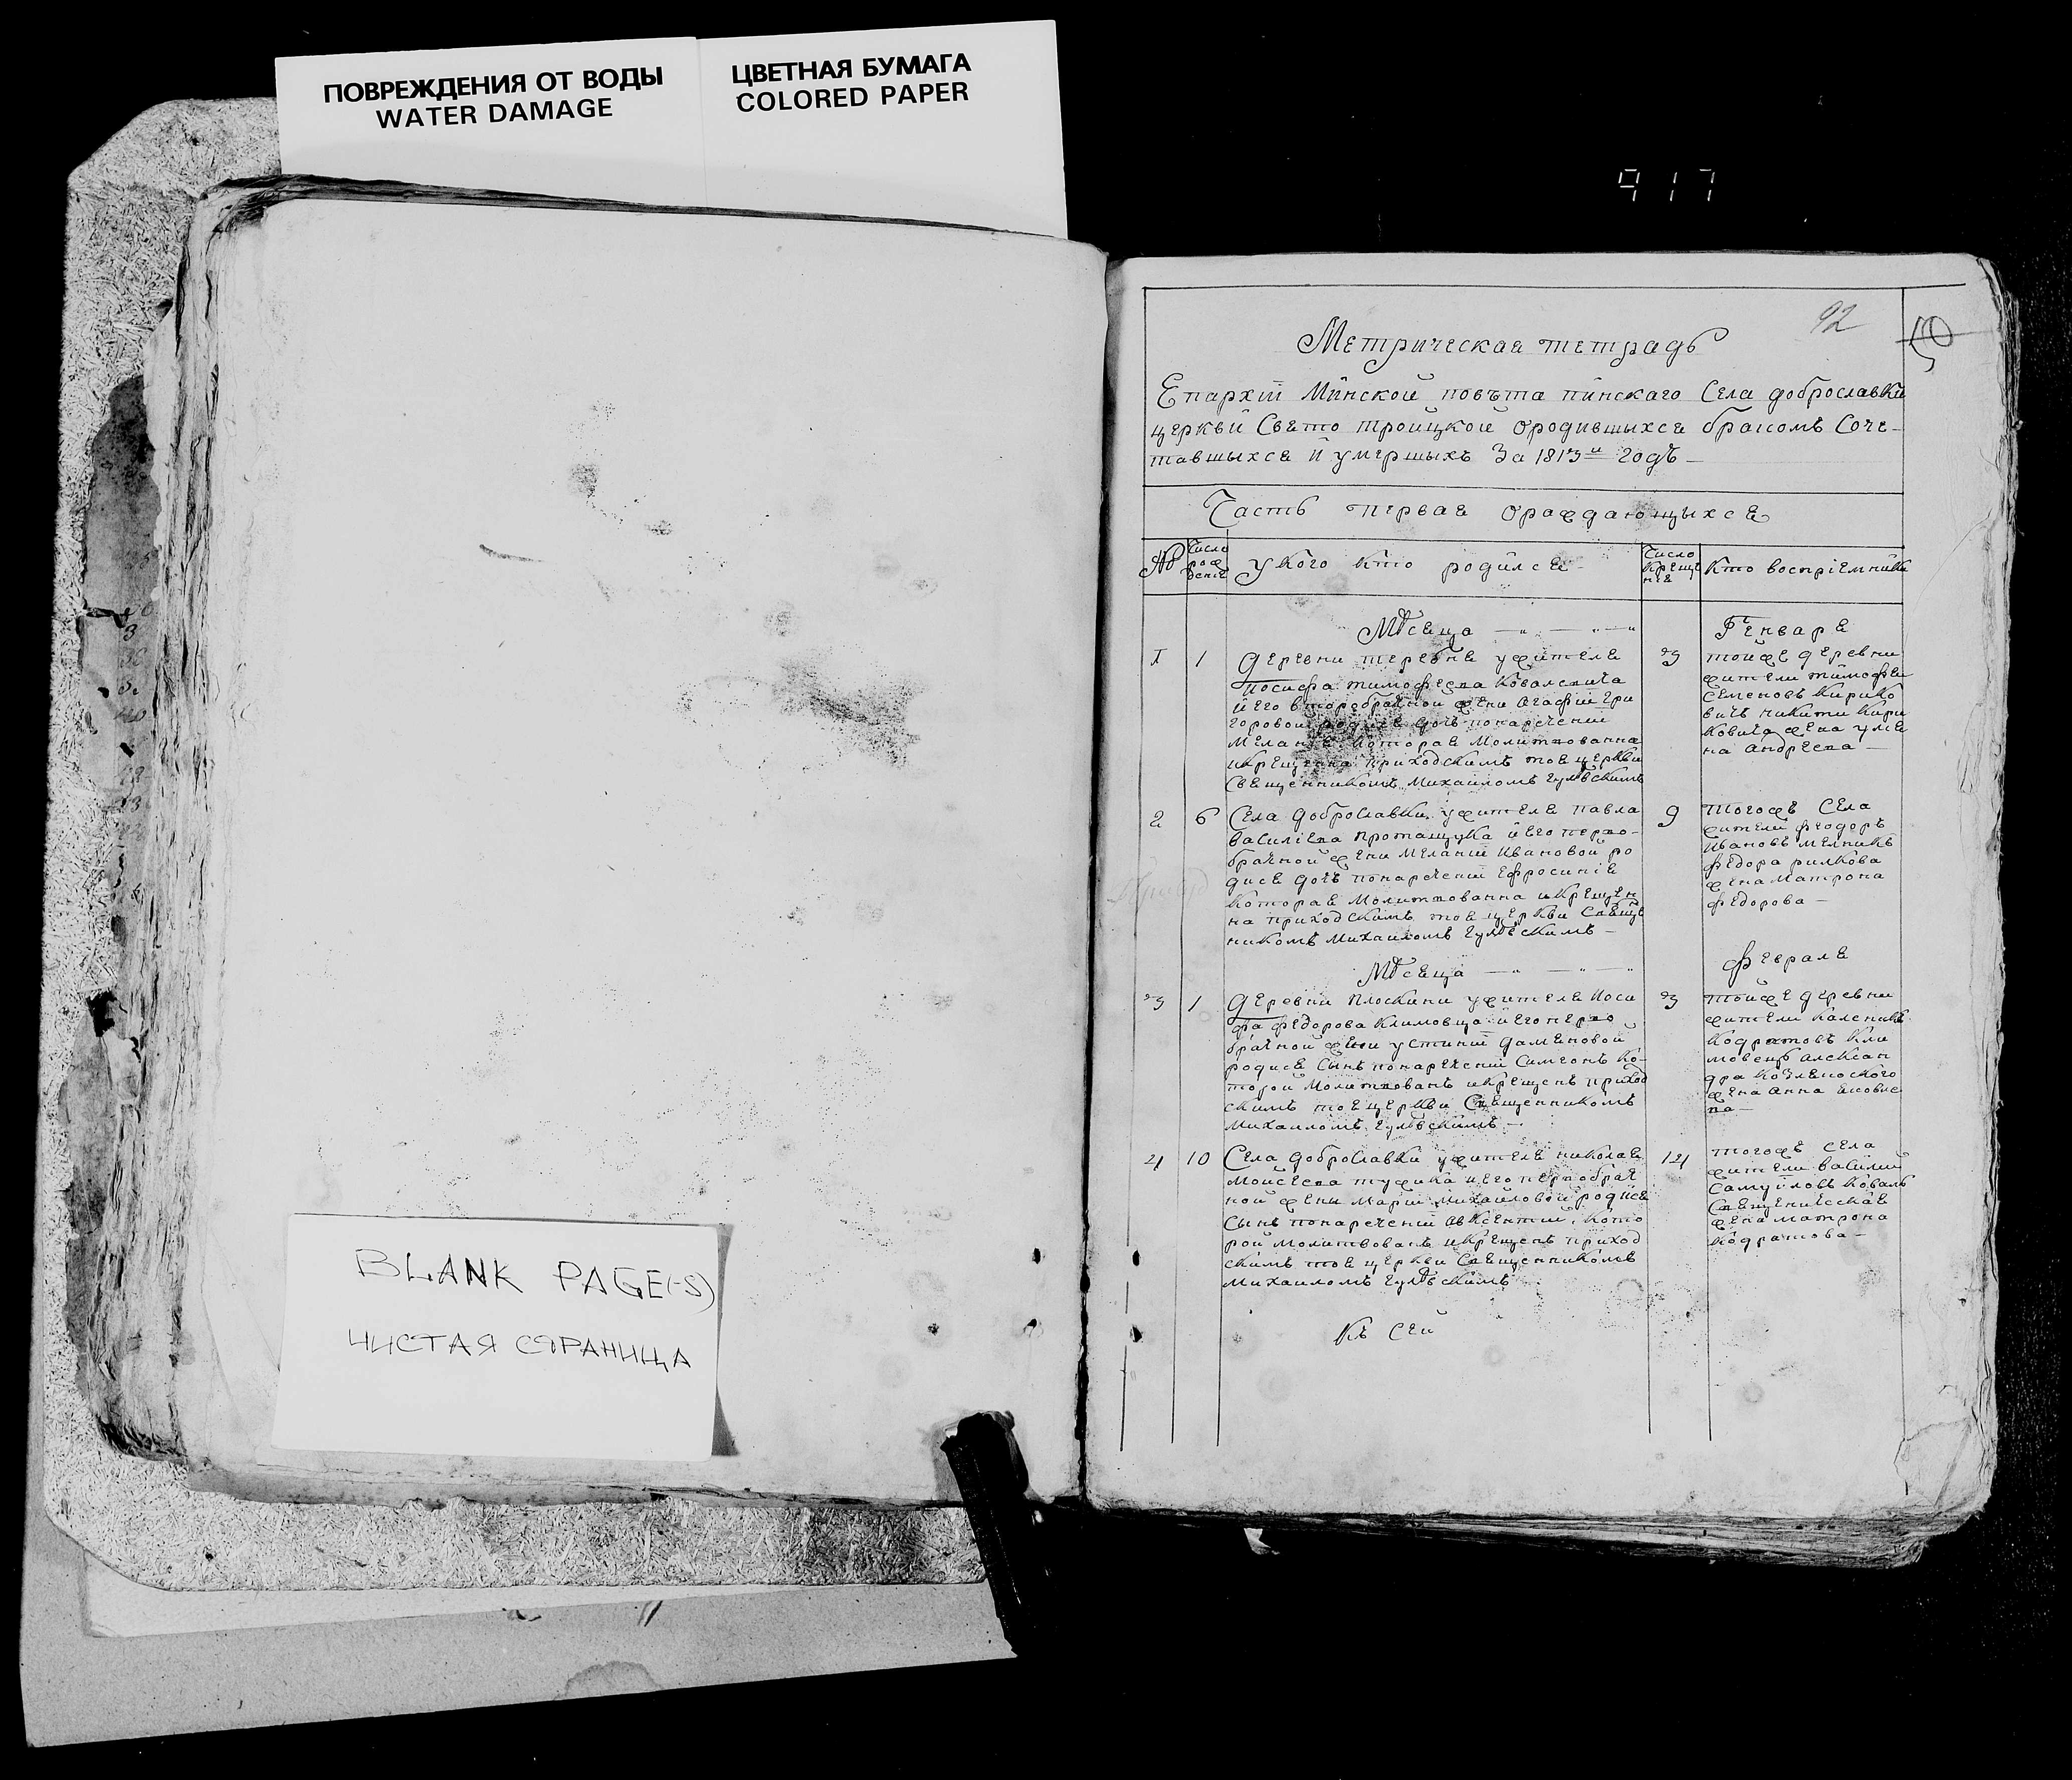 ПОВРЕЖДЕНИЯ ОТ ВОДЫ
WATER DAMAGE
ЦВЕТНАЯ БУМАГА
COLORED PAPER
917
92
Метрическая тетрадь
Епархіи Минской повѣта пинскаго Села доброславки
церкви Свято Троицкой ородившыхся бракомъ Соче-
тавшыхся и умершыхъ За 1813й годъ
Часть первая ораждающыхся
№
Число рож денія
Укого кто родился
Число Креще нія
Кто воспріемники
Мѣсяца
Генваря
1
1
Деревни теребня ужителя
Иосифа тимофеева Ковалевича
и его второбрачной жени Агафіи Гри
горовой родися дочь понаречении
Мелания Которая Молитвованна
икрещена приходскимъ тоя церкви
Священникомъ Михаиломъ
3
тойже деревни
жители тимофей
Семеновъ Кирико
вичъ никити Кири
ковича жена улия
на андреева
2
6
Села доброславки ужителя павла
василіева протащука и его перво-
брачной жени Меланіи Ивановой ро
дися дочь понаречении Ефросинія
Которая Молитвованна икрещен
на приходскимъ тоя церкви Свяще
никомъ Михаиломъ
9
тогожъ Села
жители феодоръ
Ивановъ Мелникъ
федора рилкова
жена Матрона
федорова
Мѣсяца
Февраля
3
1
Деревни Плоскини ужителя Иоси
фа федорова Климовца и его перво
брачной жени устинии даменовой
родися Сынъ понаречении Симеонъ Ко-
торой Молитвованъ икрещенъ приход
скимъ тоя церкви Священникомъ
Михаиломъ
3
тойже деревни
жители Каленикъ
Кодратовъ Кли
мовецъ алексан
дра
жена анна яковле
ва
4
10
Села доброславки ужителя николая
Моисеева тужика и его первобрач
ной жени Марии Михайловой родися
Сынъ понаречении авксентии Кото
рой Молитвованъ икрещенъ приход
скимъ тоя церкви Священникомъ
Михаиломъ
14
тогожъ Села
жители василий
Самуиловъ Коваль
Священическая
жена матрона
Кодратова
Къ Сей
BLANK PAGE(-S)
ЧИСТАЯ СТРАНИЦА